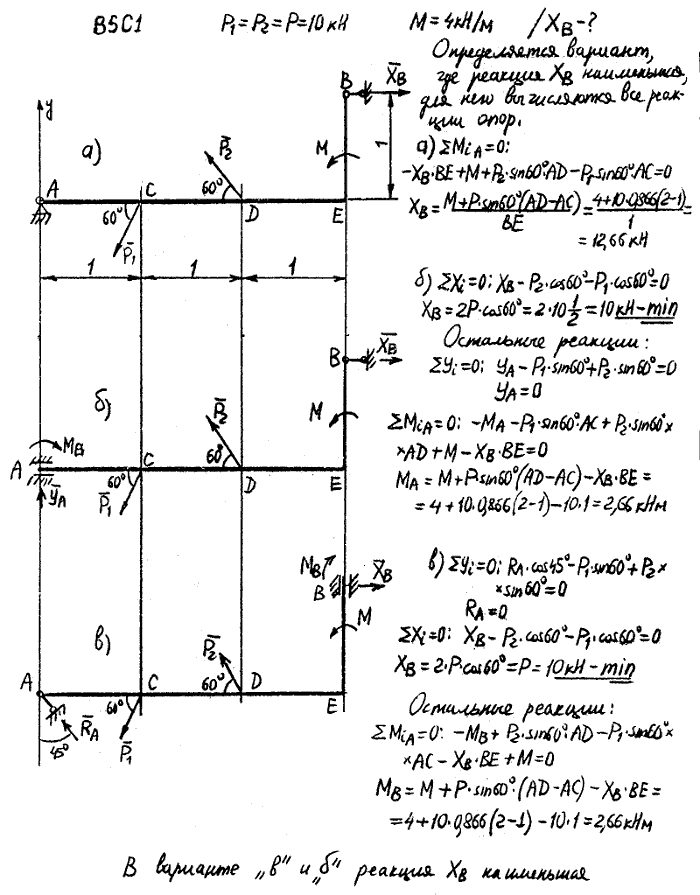 В5С1 P₁=P₂=P=10 кН M=4кН/м /X_B-?
Определяется вариант,
где реакция X_B наименьшая,
для него вычисляются все реак-
ции опор.
а) ΣM_iA=0:
-X_B·BE+M+P₂·sin60°·AD-P₁·sin60°·AC=0
X_B= (M+P·sin60°(AD-AC))/BE = (4+10·0,866(2-1))/1 =
=12,66 кН
y
а)
A
C
D
E
B
X̄_B
M
P̄₂
60°
60°
P̄₁
1
1 1 1
б) ΣX_i=0: X_B-P₂·cos60°-P₁·cos60°=0
X_B=2P·cos60°=2·10 1/2=10 кН-min
Остальные реакции:
ΣY_i=0; Y_A-P₁·sin60°+P₂·sin60°=0
Y_A=0
ΣM_iA=0: -M_A-P₁·sin60°·AC+P₂·sin60°×
×AD+M-X_B·BE=0
M_A=M+P·sin60°(AD-AC)-X_B·BE=
=4+10·0,866(2-1)-10·1=2,66 кНм
б)
B
X̄_B
M
P̄₂
M_B
A
60°
C
60°
D
E
Ȳ_A
P̄₁
в) ΣY_i=0; R_A·cos45°-P₁·sin60°+P₂×
×sin60°=0
R_A=0
ΣX_i=0: X_B-P₂·cos60°-P₁·cos60°=0
X_B=2·P·cos60°=P=10кН-min
Остальные реакции:
ΣM_iA=0: -M_B+P₂·sin60°·AD-P₁·sin60°×
×AC-X_B·BE+M=0
M_B=M+P·sin60°·(AD-AC)-X_B·BE=
=4+10·0,866(2-1)-10·1=2,66кНм
в)
M_B
B
X̄_B
M
P̄₂
A
60°
C
60°
D
E
R̄_A
45°
P̄₁
В варианте „в" и „б" реакция X_B наименьшая